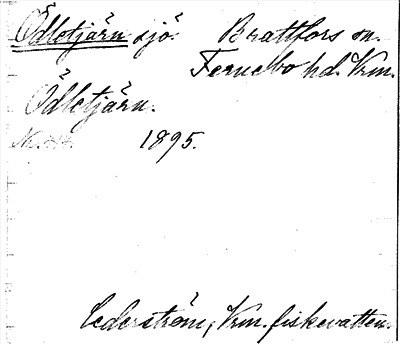 Ödletjärn sjö. Brattfors sn.
Fernebo hd. Vrm.
Ödletjärn.
1895.
Cederström, Vrm. fiskevatten.